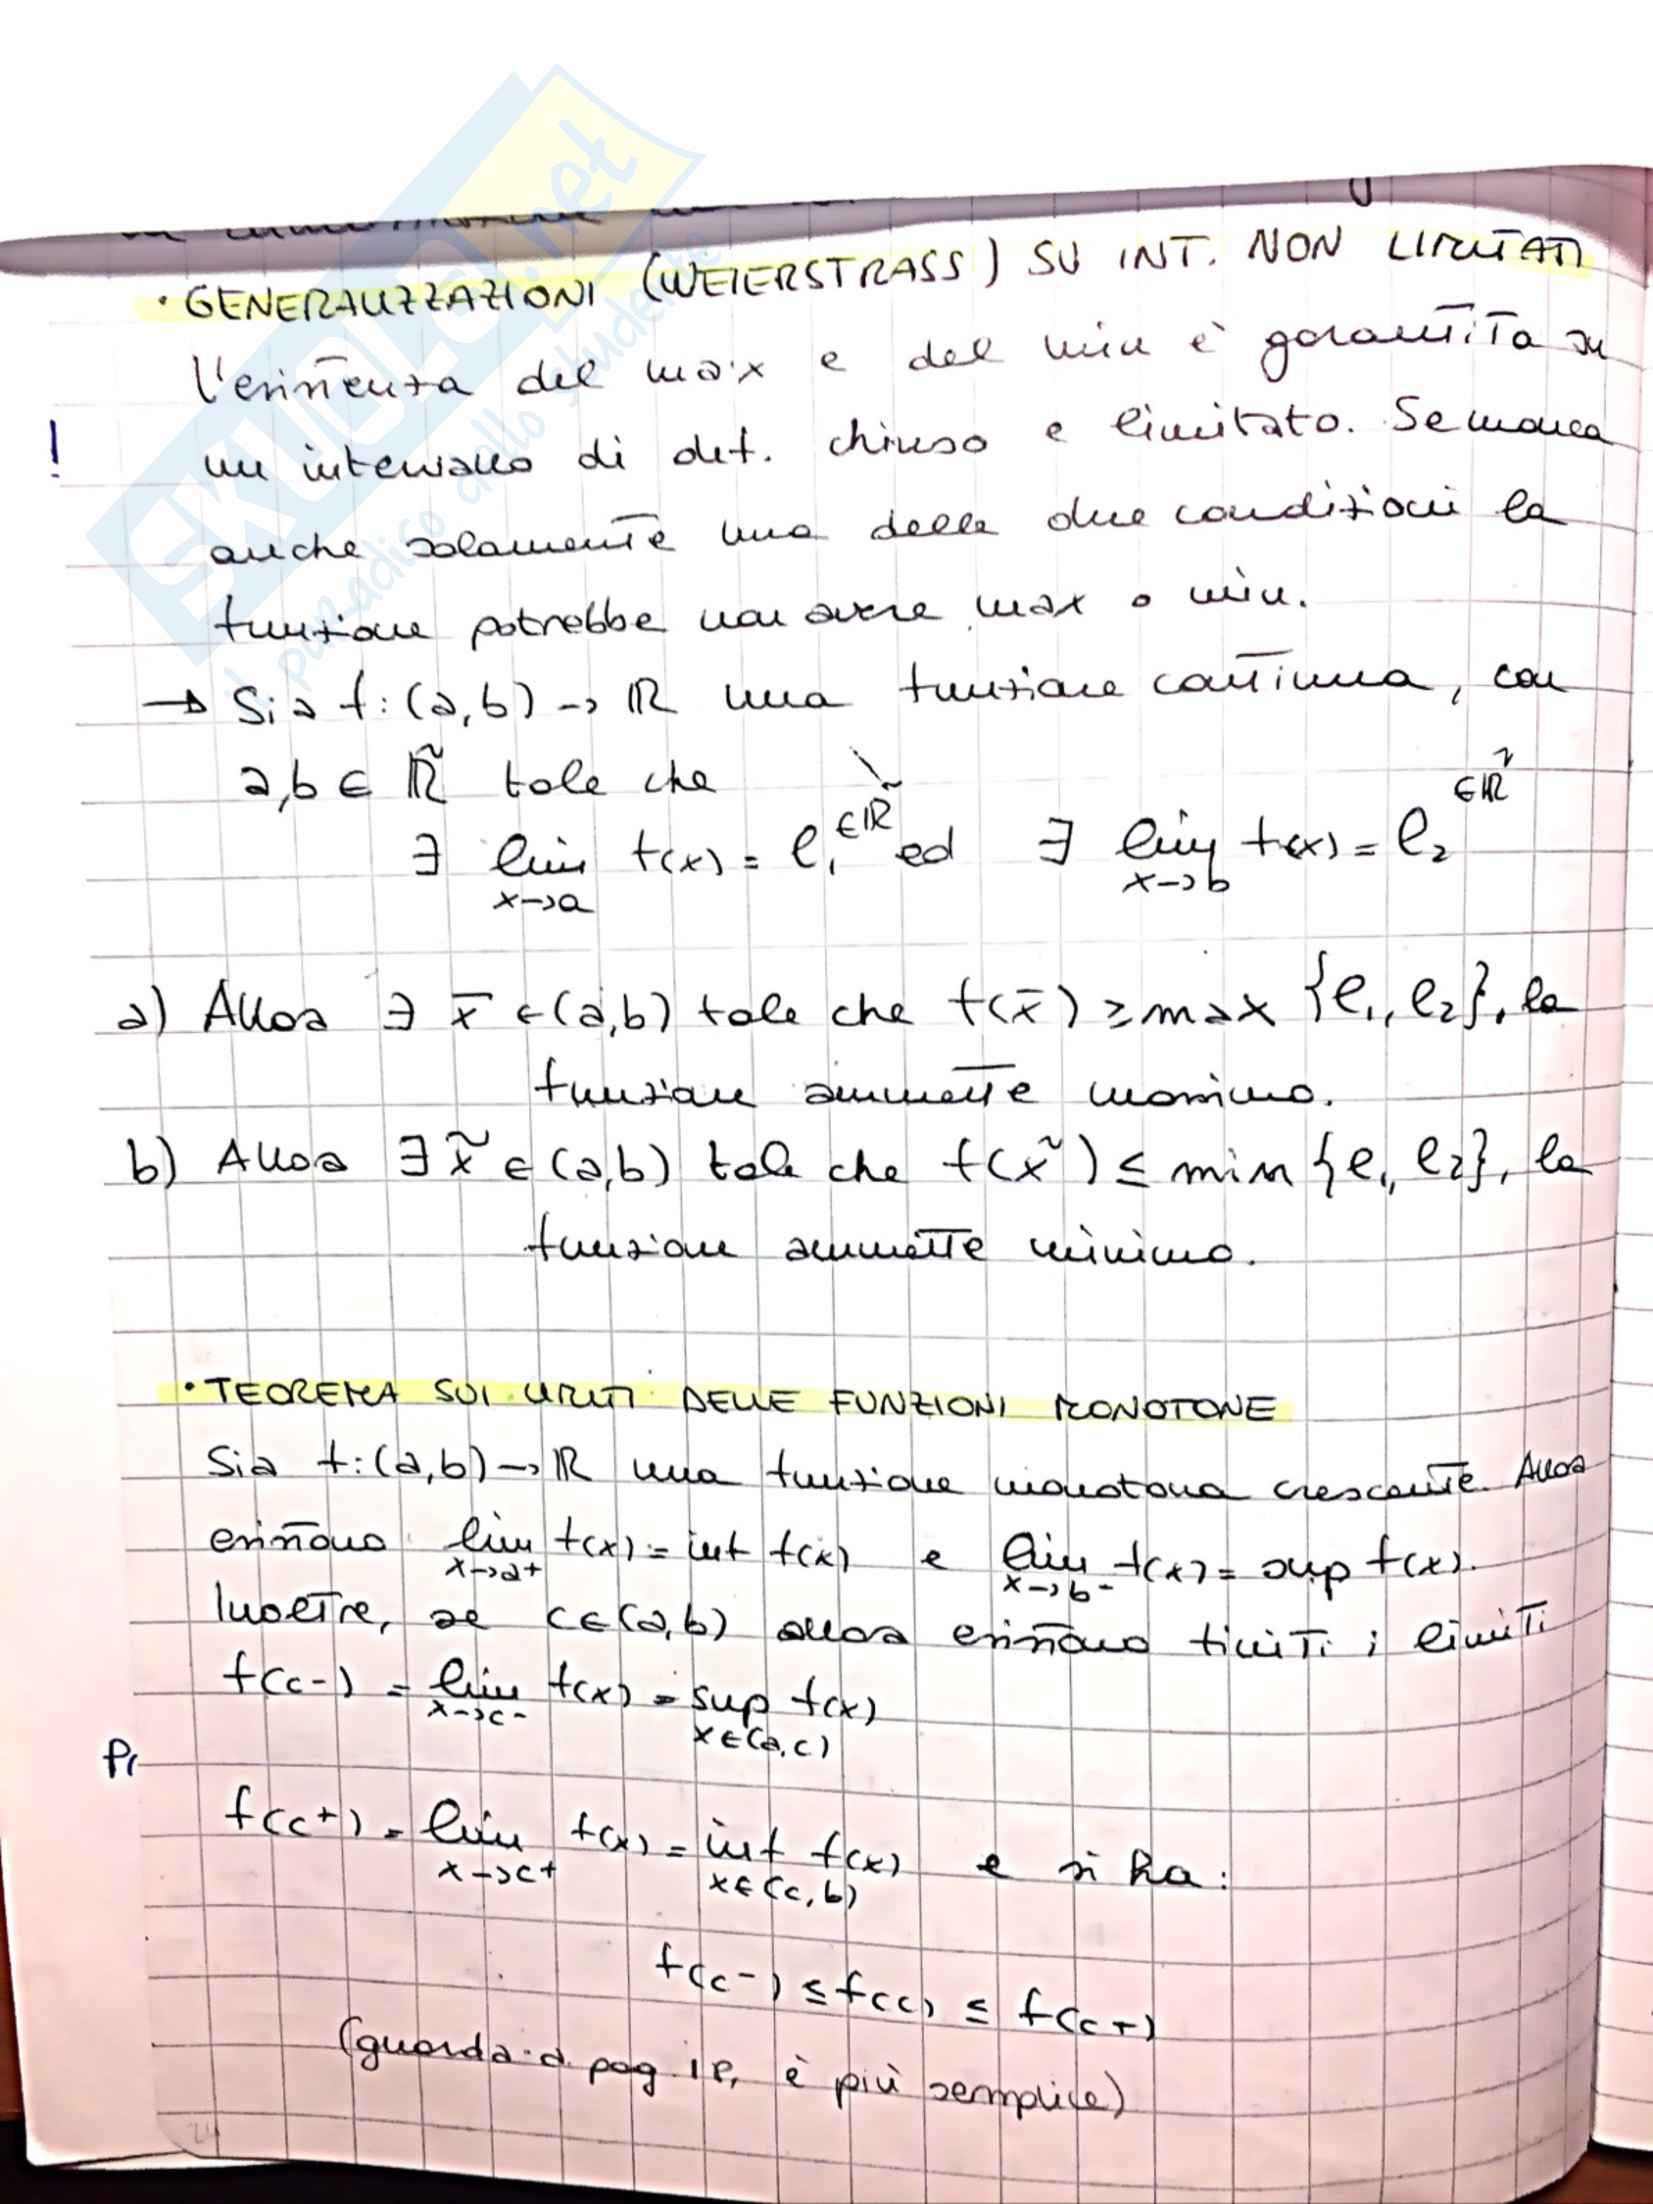 • GENERALIZZAZIONI (WEIERSTRASS) SU INT. NON LIMITATI
L'esistenza del max e del min è garantita su
! un intervallo di def. chiuso e limitato. Se manca
anche solamente una delle due condizioni la
funzione potrebbe non avere max o min.
→ Sia f: (a,b) → ℝ una funzione continua, con
a,b ∈ ℝ̃ tale che
∃ lim x→a f(x) = l₁ ∈ℝ̃ ed ∃ lim x→b f(x) = l₂ ∈ℝ̃
a) Allora ∃ x̄ ∈ (a,b) tale che f(x̄) ≥ max {l₁, l₂}, la
funzione ammette massimo.
b) Allora ∃ x̃ ∈ (a,b) tale che f(x̃) ≤ min {l₁, l₂}, la
funzione ammette minimo.
• TEOREMA SUI LIMITI DELLE FUNZIONI MONOTONE
Sia f: (a,b) → ℝ una funzione monotona crescente. Allora
esistono lim x→a+ f(x) = inf f(x) e lim x→b- f(x) = sup f(x).
Inoltre, se c∈(a,b) allora esistono finiti i limiti
f(c-) = lim x→c- f(x) = sup x∈(a,c) f(x)
Pr
f(c+) = lim x→c+ f(x) = inf x∈(c,b) f(x) e si ha:
f(c-) ≤ f(c) ≤ f(c+)
(guarda a pag è più semplice)
24
SKUOLA.net
il paradiso dello studente